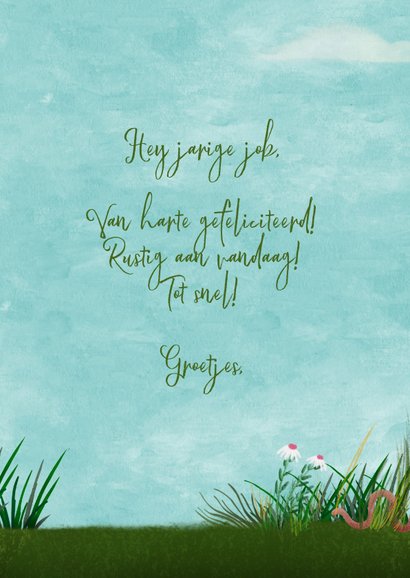 Hey jarige job,
Van harte gefeliciteerd!
Rustig aan vandaag!
Tot snel!
Groetjes,